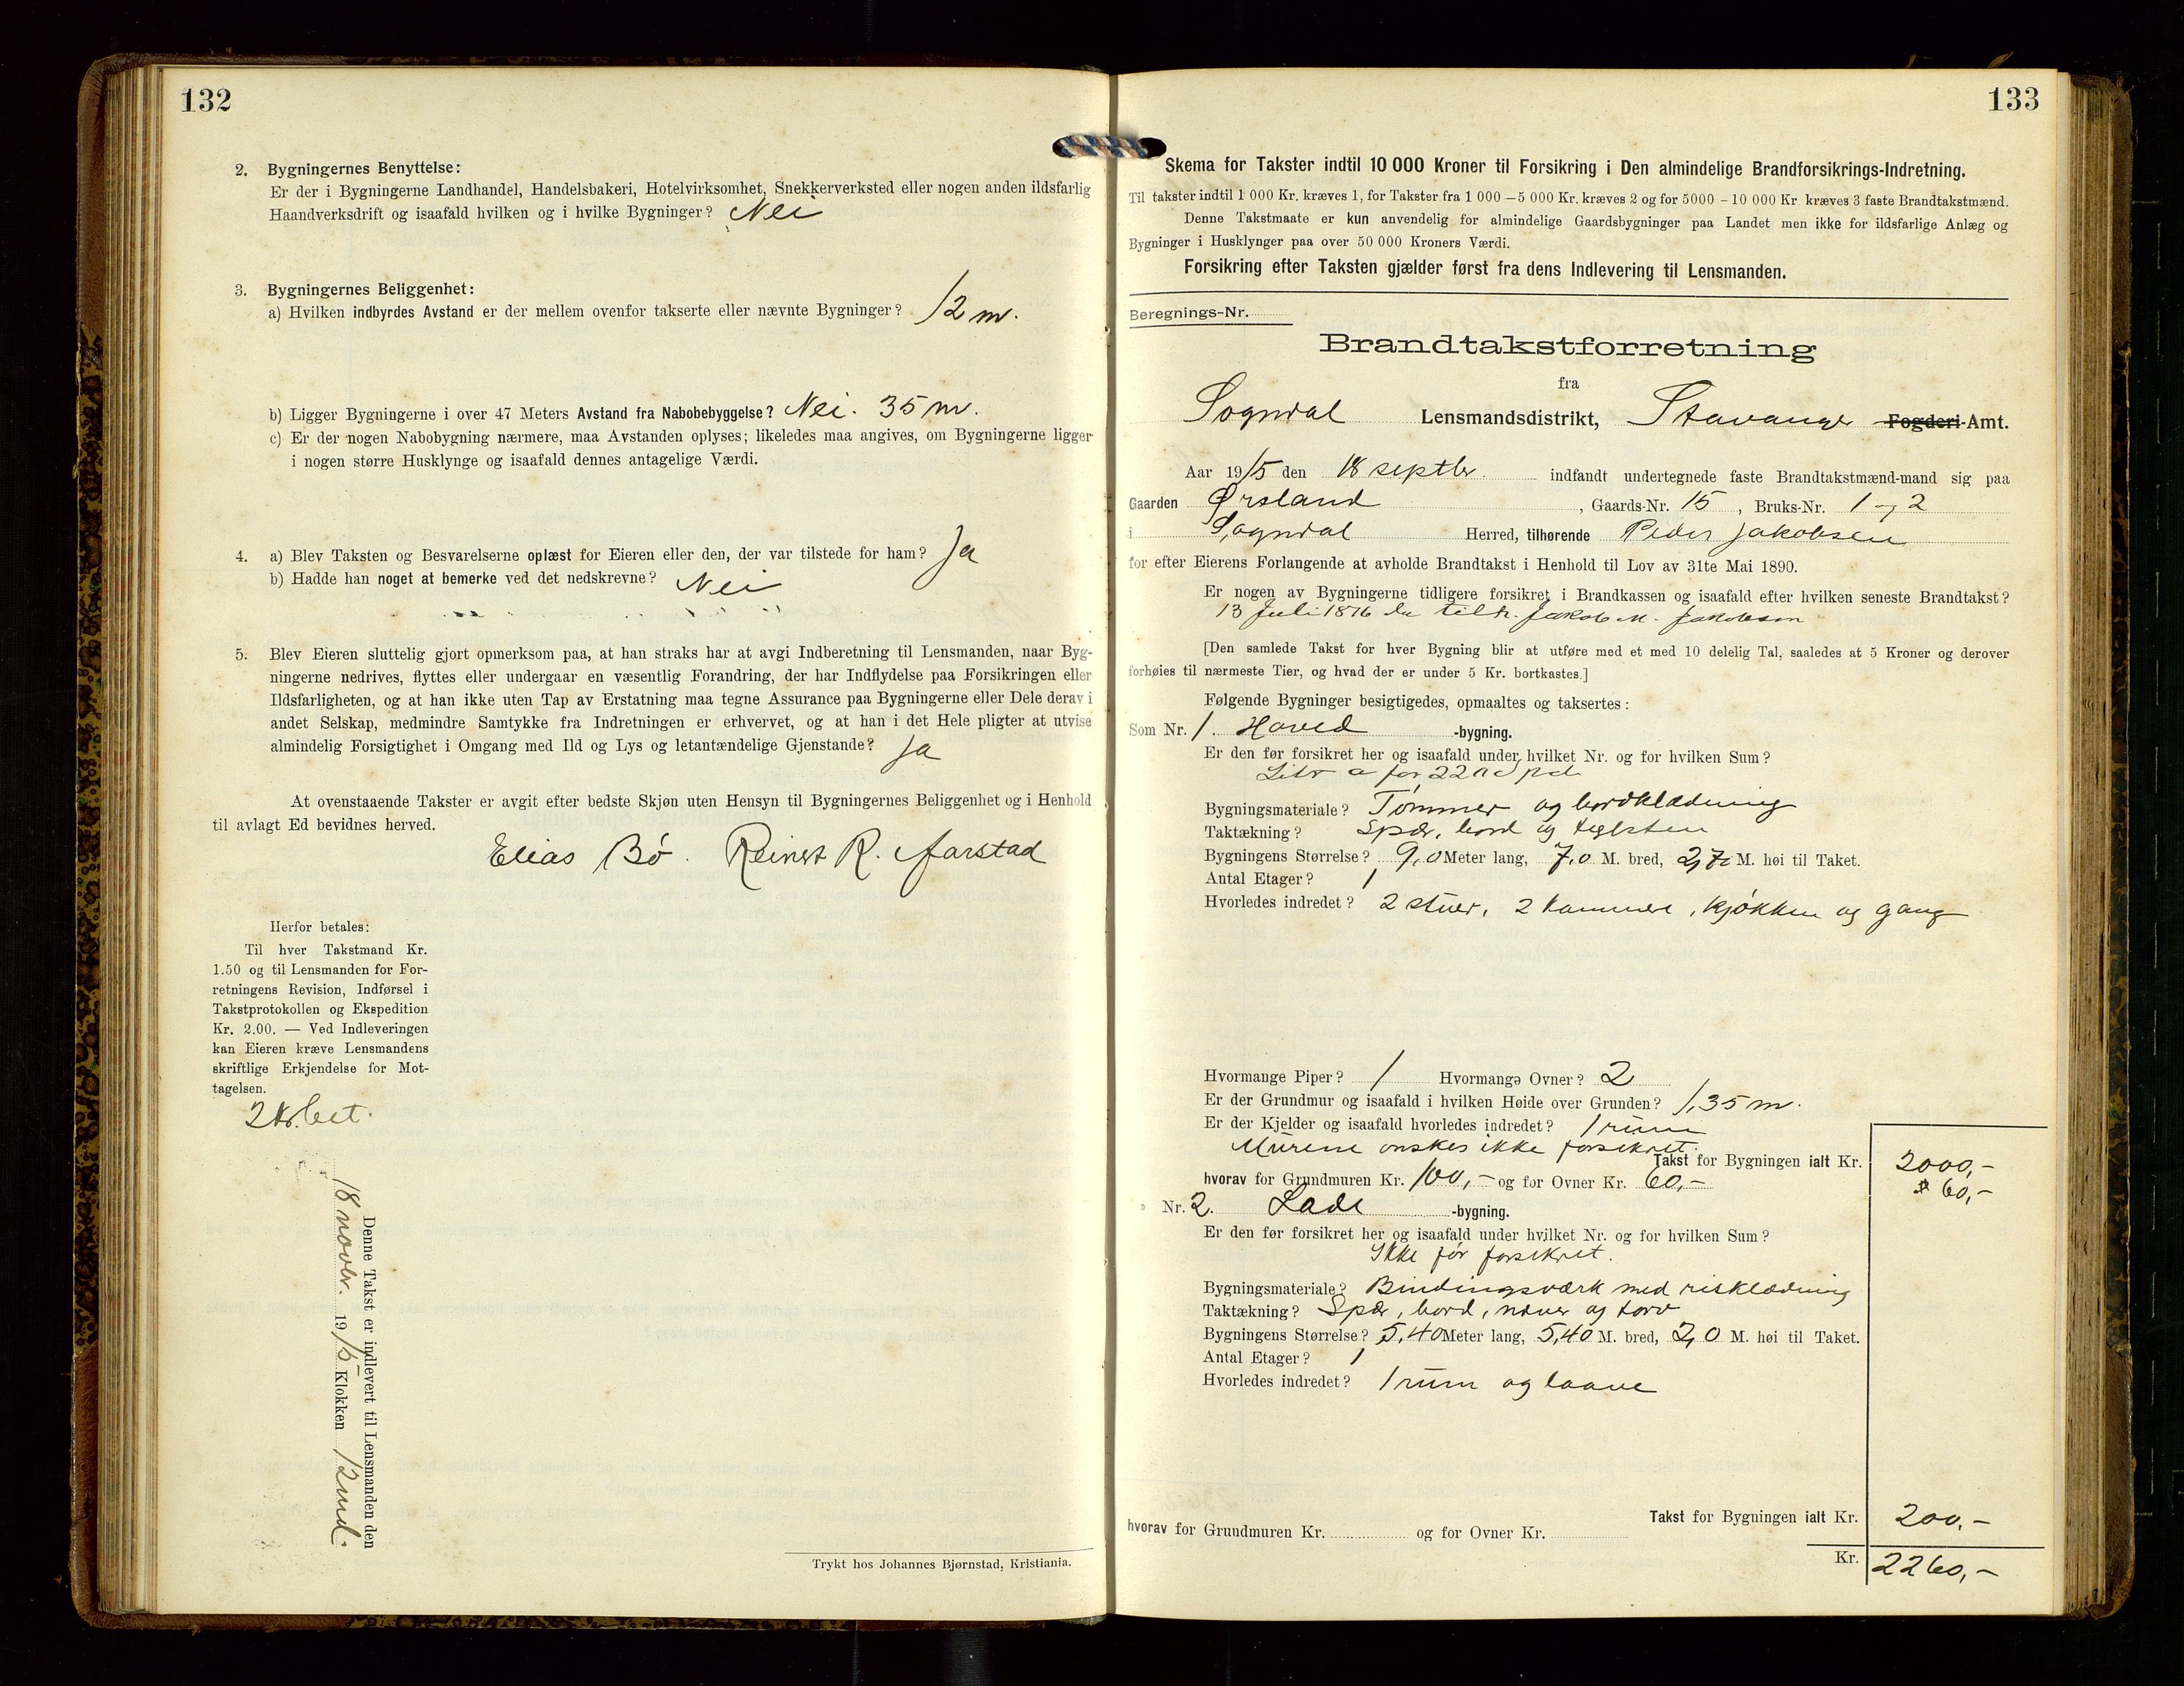 132
2. Bygningernes Benyttelse:
Er der i Bygningerne Landhandel, Handelsbakeri, Hotelvirksomhet, Snekkerverksted eller nogen anden ildsfarlig
Haandverksdrift og isaafald hvilken og i hvilke Bygninger? Nei
3. Bygningernes Beliggenhet:
a) Hvilken indbyrdes Avstand er der mellem ovenfor takserte eller nævnte Bygninger? 12 m.
b) Ligger Bygningerne i over 47 Meters Avstand fra Nabobebyggelse? Nei. 35 m.
c) Er der nogen Nabobygning nærmere, maa Avstanden oplyses; likeledes maa angives, om Bygningerne ligger
i nogen større Husklynge og isaafald dennes antagelige Værdi.
4. a) Blev Taksten og Besvarelserne oplæst for Eieren eller den, der var tilstede for ham? Ja
b) Hadde han noget at bemerke ved det nedskrevne? Nei
5. Blev Eieren sluttelig gjort opmerksom paa, at han straks har at avgi Indberetning til Lensmanden, naar Byg-
ningerne nedrives, flyttes eller undergaar en væsentlig Forandring, der har Indflydelse paa Forsikringen eller
Ildsfarligheten, og at han ikke uten Tap av Erstatning maa tegne Assurance paa Bygningerne eller Dele derav i
andet Selskap, medmindre Samtykke fra Indretningen er erhvervet, og at han i det Hele pligter at utvise
almindelig Forsigtighet i Omgang med Ild og Lys og letantændelige Gjenstande? Ja
At ovenstaaende Takster er avgit efter bedste Skjøn uten Hensyn til Bygningernes Beliggenhet og i Henhold
til avlagt Ed bevidnes herved.
Elias Bö. Reinert R. Aarstad
Herfor betales:
Til hver Takstmand Kr.
1.50 og til Lensmanden for For-
retningens Revision, Indførsel i
Takstprotokollen og Ekspedition
Kr. 2.00. — Ved Indleveringen
kan Eieren kræve Lensmandens
skriftlige Erkjendelse for Mot-
tagelsen.
2 Kr. bet.
Denne Takst er indlevert til Lensmanden den
18 novbr. 1915 Klokken 12 md.
Trykt hos Johannes Bjørnstad, Kristiania.
133
Skema for Takster indtil 10 000 Kroner til Forsikring i Den almindelige Brandforsikrings-Indretning.
Til takster indtil 1 000 Kr. kræves 1, for Takster fra 1 000 – 5 000 Kr. kræves 2 og for 5000 – 10 000 Kr. kræves 3 faste Brandtakstmænd.
Denne Takstmaate er kun anvendelig for almindelige Gaardsbygninger paa Landet men ikke for ildsfarlige Anlæg og
Bygninger i Husklynger paa over 50 000 Kroners Værdi.
Forsikring efter Taksten gjælder først fra dens Indlevering til Lensmanden.
Beregnings-Nr.
Brandtakstforretning
fra
Sogndal Lensmandsdistrikt, Stavanger Fogderi-Amt.
Aar 1915 den 18 septbr. indfandt undertegnede faste Brandtakstmænd-mand sig paa
Gaarden Ørsland, Gaards-Nr. 15, Bruks-Nr. 1 og 2
i Sogndal Herred, tilhørende Peder Jakobsen
for efter Eierens Forlangende at avholde Brandtakst i Henhold til Lov av 31te Mai 1890.
Er nogen av Bygningerne tidligere forsikret i Brandkassen og isaafald efter hvilken seneste Brandtakst?
13 Juli 1876 da tilh. Jakob M. Jakobsen
[Den samlede Takst for hver Bygning blir at utføre med et med 10 delelig Tal, saaledes at 5 Kroner og derover
forhøies til nærmeste Tier, og hvad der er under 5 Kr. bortkastes.]
Følgende Bygninger besigtigedes, opmaaltes og taksertes:
Som Nr. 1. Hoved -bygning.
Er den før forsikret her og isaafald under hvilket Nr. og for hvilken Sum?
Litr a for 220 Spd
Bygningsmateriale? Tømmer og bordklædning
Taktækning? Spær, bord og teglsten
Bygningens Størrelse? 9,0 Meter lang, 7,0 M. bred, 2,70 M. høi til Taket.
Antal Etager? 1
Hvorledes indredet? 2 stuer, 2 kammere, kjøkken og gang
Hvormange Piper? 1 Hvormange Ovner? 2
Er der Grundmur og isaafald i hvilken Høide over Grunden? 1,35 m.
Er der Kjelder og isaafald hvorledes indredet? 1 rum
Murene ønskes ikke forsikret.
Takst for Bygningen ialt Kr. 2000,-
hvorav for Grundmuren Kr. 100,- og for Ovner Kr. 60,- 60,-
Nr. 2. Lade -bygning.
Er den før forsikret her og isaafald under hvilket Nr. og for hvilken Sum?
Ikke før forsikret.
Bygningsmateriale? Bindingsværk med risklædning
Taktækning? Spær, bord, næver og torv
Bygningens Størrelse? 5,40 Meter lang, 5,40 M. bred, 2,0 M. høi til Taket.
Antal Etager? 1
Hvorledes indredet? 1 rum og laave
Takst for Bygningen ialt Kr. 200,-
hvorav for Grundmuren Kr. og for Ovner Kr.
Kr. 2260,-